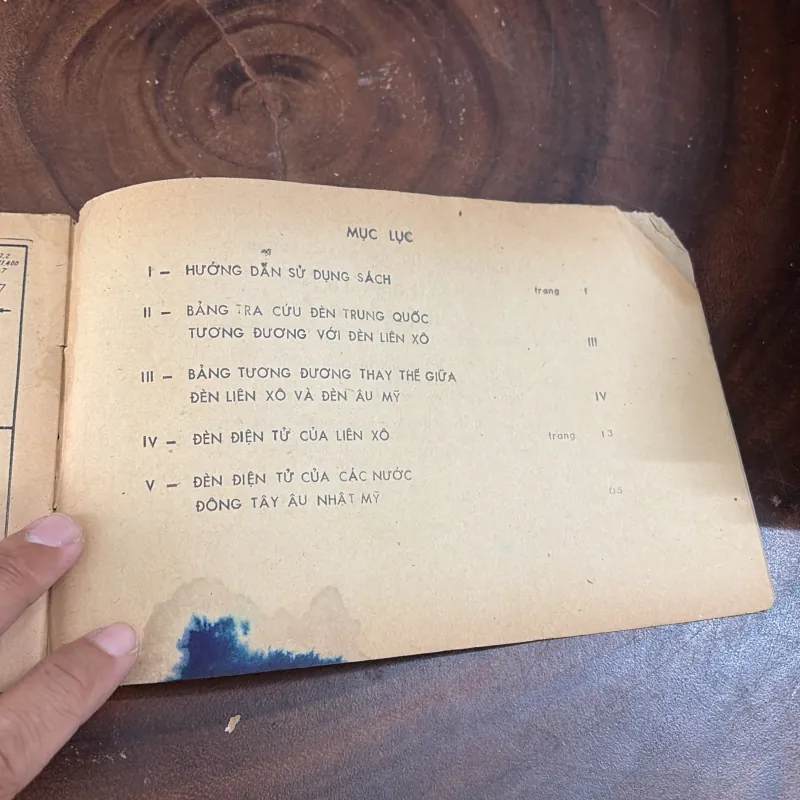 MỤC LỤC
I – HƯỚNG DẪN SỬ DỤNG SÁCH trang 1
II – BẢNG TRA CỨU ĐÈN TRUNG QUỐC
TƯƠNG ĐƯƠNG VỚI ĐÈN LIÊN XÔ III
III – BẢNG TƯƠNG ĐƯƠNG THAY THẾ GIỮA
ĐÈN LIÊN XÔ VÀ ĐÈN ÂU MỸ IV
IV – ĐÈN ĐIỆN TỬ CỦA LIÊN XÔ trang 13
V – ĐÈN ĐIỆN TỬ CỦA CÁC NƯỚC
ĐÔNG TÂY ÂU NHẬT MỸ